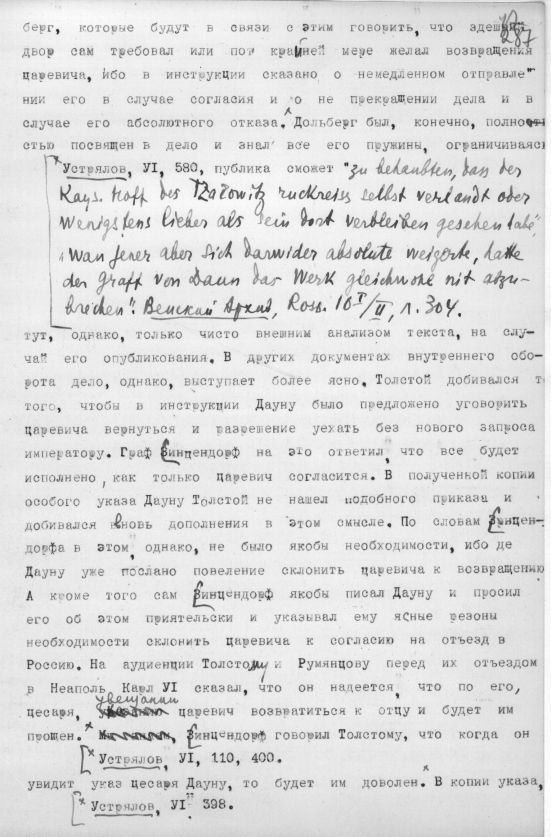 287
берг, которые будут в связи с этим говорить, что здешний
двор сам требовал или пот крайней мере желал возвращения
царевича, ибо в инструкции сказано о немедленном отправле-
нии его в случае согласия и о не прекращении дела и в
случае его абсолютного отказа.* Дольберг был, конечно, полность
стью посвящен в дело и знал все его пружины, ограничиваясь
* Устрялов, УІ, 580, публика сможет "zu behaubten, dass der
Kays. Hoff des Tzarowitz ruckreise selbst verlandt oder
wenigstens lieber als sein dort verbleiben gesehen habe",
"wan jener aber sich darwider absolute weigerte, hatte
der Graff von Daun das Werk gleichwohl nit abzu-
brechen". Венский Архив, Russ. 10 I/II, л. 304.
тут, однако, только чисто внешним анализом текста, на слу-
чай его опубликования. В других документах внутреннего обо-
рота дело, однако, выступает более ясно. Толстой добивался т
того, чтобы в инструкции Дауну было предложено уговорить
царевича вернуться и разрешение уехать без нового запроса
императору. Граф Зинцендорф на это ответил, что все будет
исполнено, как только царевич согласится. В полученной копии
особого указа Дауну Толстой не нашел подобного приказа и
добивался вновь дополнения в этом смысле. По словам Зинцен-
дорфа в этом, однако, не было якобы необходимости, ибо де
Дауну уже послано повеление склонить царевича к возвращению
А кроме того сам Зинцендорф якобы писал Дауну и просил
его об этом приятельски и указывал ему ясные резоны
необходимости склонить царевича к согласию на отъезд в
Россию. На аудиенции Толстому и Румянцову перед их отъездом
в Неаполь, Карл УІ сказал, что он надеется, что по его,
цесаря, увещании царевич возвратиться к отцу и будет им
прощен.* Зинцендорф говорил Толстому, что когда он
* Устрялов, УІ, 110, 400.
увидит указ цесаря Дауну, то будет им доволен.* В копии указа,
* Устрялов, УІ 398.